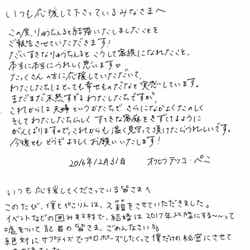 いつも応援して下さっているみなさまへ
この度、りゅうちぇると結婚いたしましたことを
ご報告させていただきます!
だいすきなりゅうちぇると こうして家族になれたこと、
本当に本当にうれしく思いますψ
たくさんの方に応援していただいて、
わたしたちはとっても幸せものだなぁと実感しています。
まだまだ未熟すぎるわたしたちですが、
これからは夫婦というかたちで さらになかよくたのしく
そしてわたしたちらしく すてきな家庭をきずけるように
がんばりますので、これからも温く見守って頂けたらうれしいです。
今後とも どうぞよろしくお願いいたします!
2016年12月31日
オクヒラテツコ・ぺこ
いつも応援してくださっている皆さまへ
このたび、僕とぺこりんは、入籍をさせていただきました。
イベントなどの囲み取材で、結婚は2017年以降にする〜〜って
嘘をついて 記者の皆さま、ごめんなさい
絶対にサプライズでプロポーズしたくって僕だけの秘密にさせて